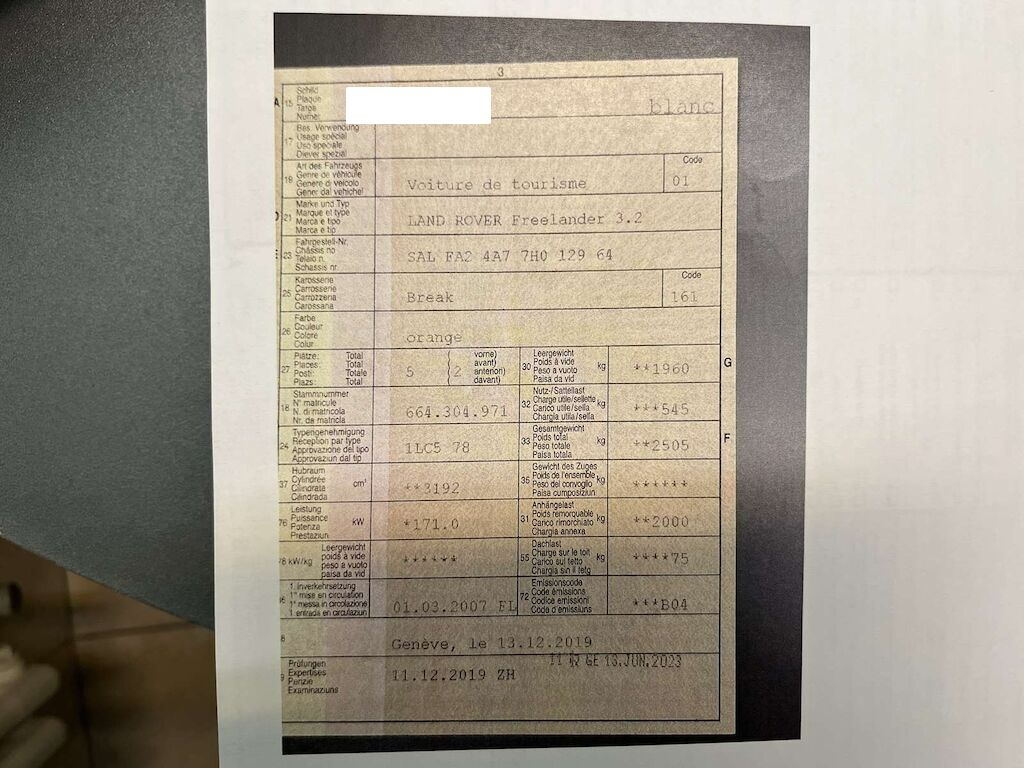 3
A 15 Schild
Plaque
Targa
Numer
blanc
17 Bes. Verwendung
Usage spécial
Uso speciale
Diever spezial
19 Art des Fahrzeugs
Genre de véhicule
Genere di veicolo
Gener dal vehichel
Voiture de tourisme
Code
01
D 21 Marke und Typ
Marque et type
Marca e tipo
Marca e tip
LAND ROVER Freelander 3.2
E 23 Fahrgestell-Nr.
Châssis no
Telaio n.
Schassis nr.
SAL FA2 4A7 7H0 129 64
25 Karosserie
Carrosserie
Carrozzeria
Carossaria
Break
Code
161
26 Farbe
Couleur
Colore
Colur
orange
27 Plätze: Total
Places: Total
Posti: Totale
Plazs: Total
5 { 2 vorne)
avant)
anteriori)
davant)
30 Leergewicht
Poids à vide
Peso a vuoto
Paisa da vid
kg
**1960
G
18 Stammnummer
N° matricule
N. di matricola
Nr. da matricla
664.304.971
32 Nutz-/Sattellast
Charge utile/sellette
Carico utile/sella
Chargia utila/sella
kg
***545
24 Typengenehmigung
Réception par type
Approvazione del tipo
Approvaziun dal tip
1LC5 78
33 Gesamtgewicht
Poids total
Peso totale
Paisa totala
kg
**2505
F
37 Hubraum
Cylindrée
Cilindrata
Cilindrada
cm³
**3192
35 Gewicht des Zuges
Poids de l'ensemble
Peso del convoglio
Paisa cumposiziun
kg
******
76 Leistung
Puissance
Potenza
Prestaziun
kW
*171.0
31 Anhängelast
Poids remorquable
Carico rimorchiato
Chargia annexa
kg
**2000
78 kW/kg Leergewicht
poids à vide
peso a vuoto
paisa da vid
******
55 Dachlast
Charge sur le toit
Carico sul tetto
Chargia sin il tetg
kg
****75
36 1. Inverkehrsetzung
1re mise en circulation
1a messa in circolazione
1 entrada en circulaziun
01.03.2007 FL
72 Emissionscode
Code émissions
Codice emissioni
Code d'emissiuns
***B04
8
Genève, le 13.12.2019
9 Prüfungen
Expertises
Perizie
Examinaziuns
11.12.2019 ZH
GE 13.JUN.2023